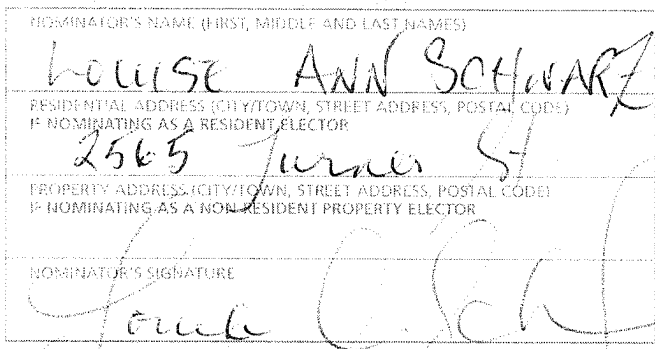 NOMINATOR'S NAME (FIRST, MIDDLE AND LAST NAMES)
LOUISE ANN SCHWARZ
RESIDENTIAL ADDRESS (CITY/TOWN, STREET ADDRESS, POSTAL CODE)
IF NOMINATING AS A RESIDENT ELECTOR
2565 Turner St
PROPERTY ADDRESS (CITY/TOWN, STREET ADDRESS, POSTAL CODE)
IF NOMINATING AS A NON-RESIDENT PROPERTY ELECTOR
NOMINATOR'S SIGNATURE